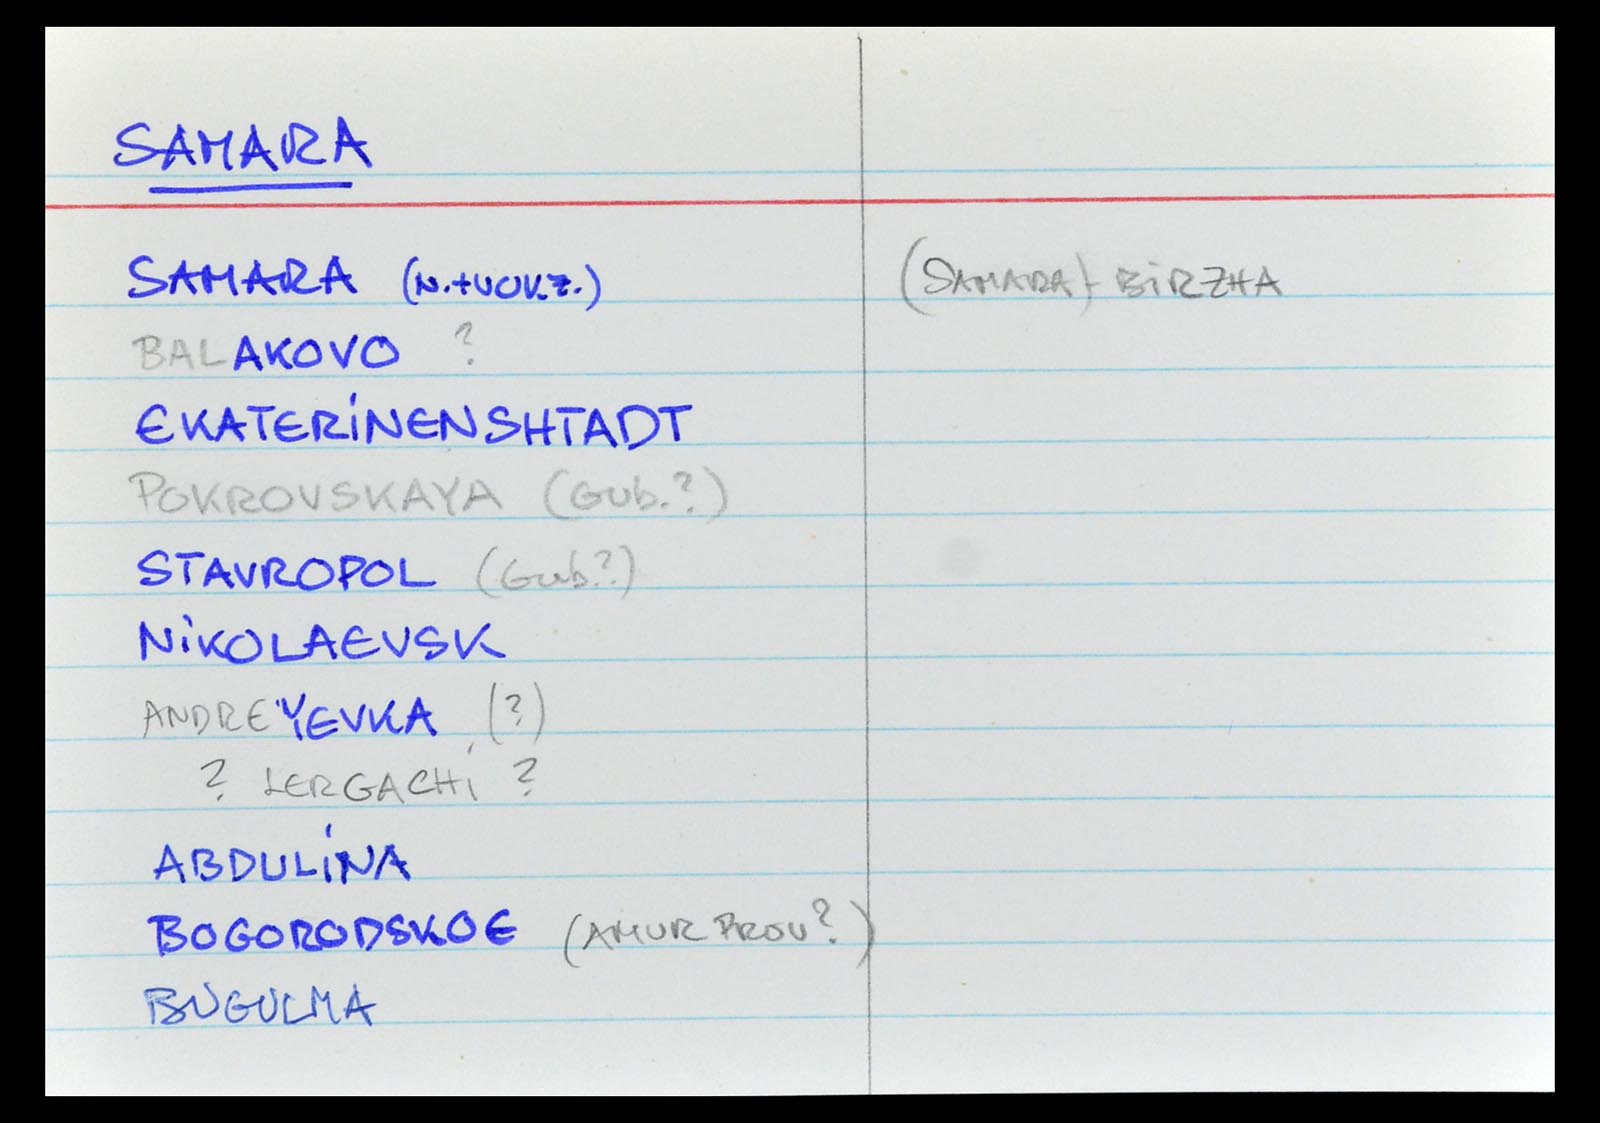 SAMARA
SAMARA (N.+VOKZ.)
(SAMARA) - BIRZHA
BALAKOVO ?
EKATERINENSHTADT
POKROVSKAYA (GUB.?)
STAVROPOL (GUB?)
NIKOLAEVSK
ANDREYEVKA (?)
? ?
ABDULINA
BOGORODSKOE (AMUR PROV?)
BUGULMA